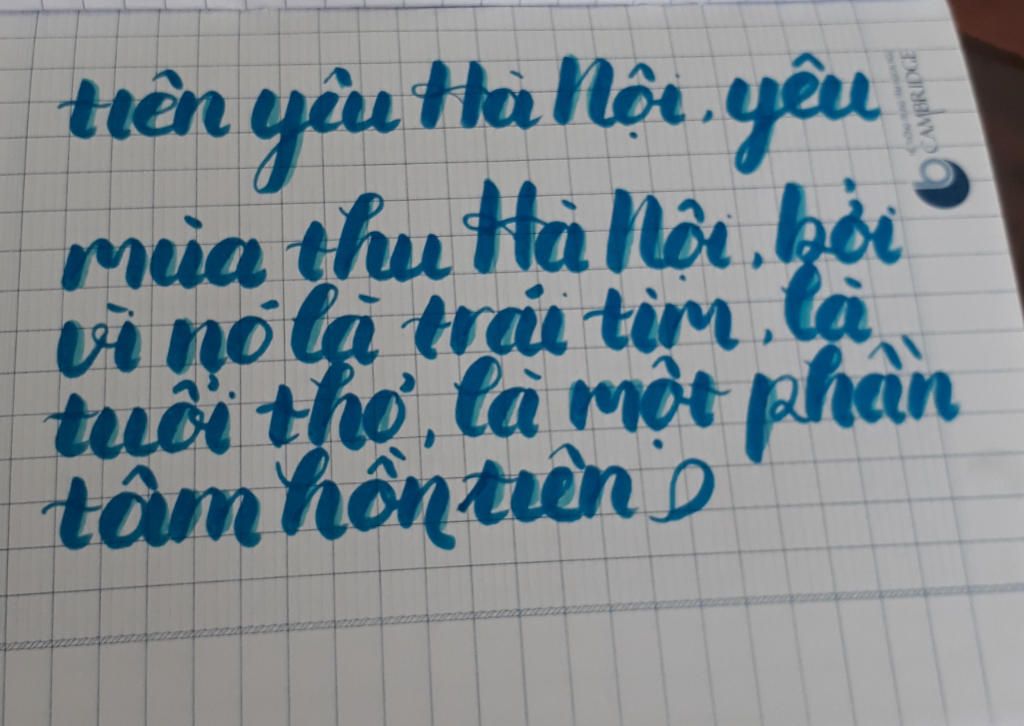 tiên yêu Hà Nội, yêu
mùa thu Hà Nội, bởi
vì nó là trái tim, là
tuổi thơ, là một phần
tâm hồn tiên
CAMBRIDGE